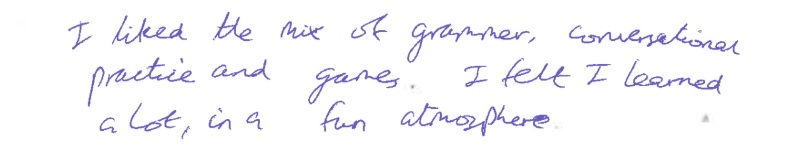 I liked the mix of grammer, conversational
practice and games. I felt I learned
a lot, in a fun atmosphere